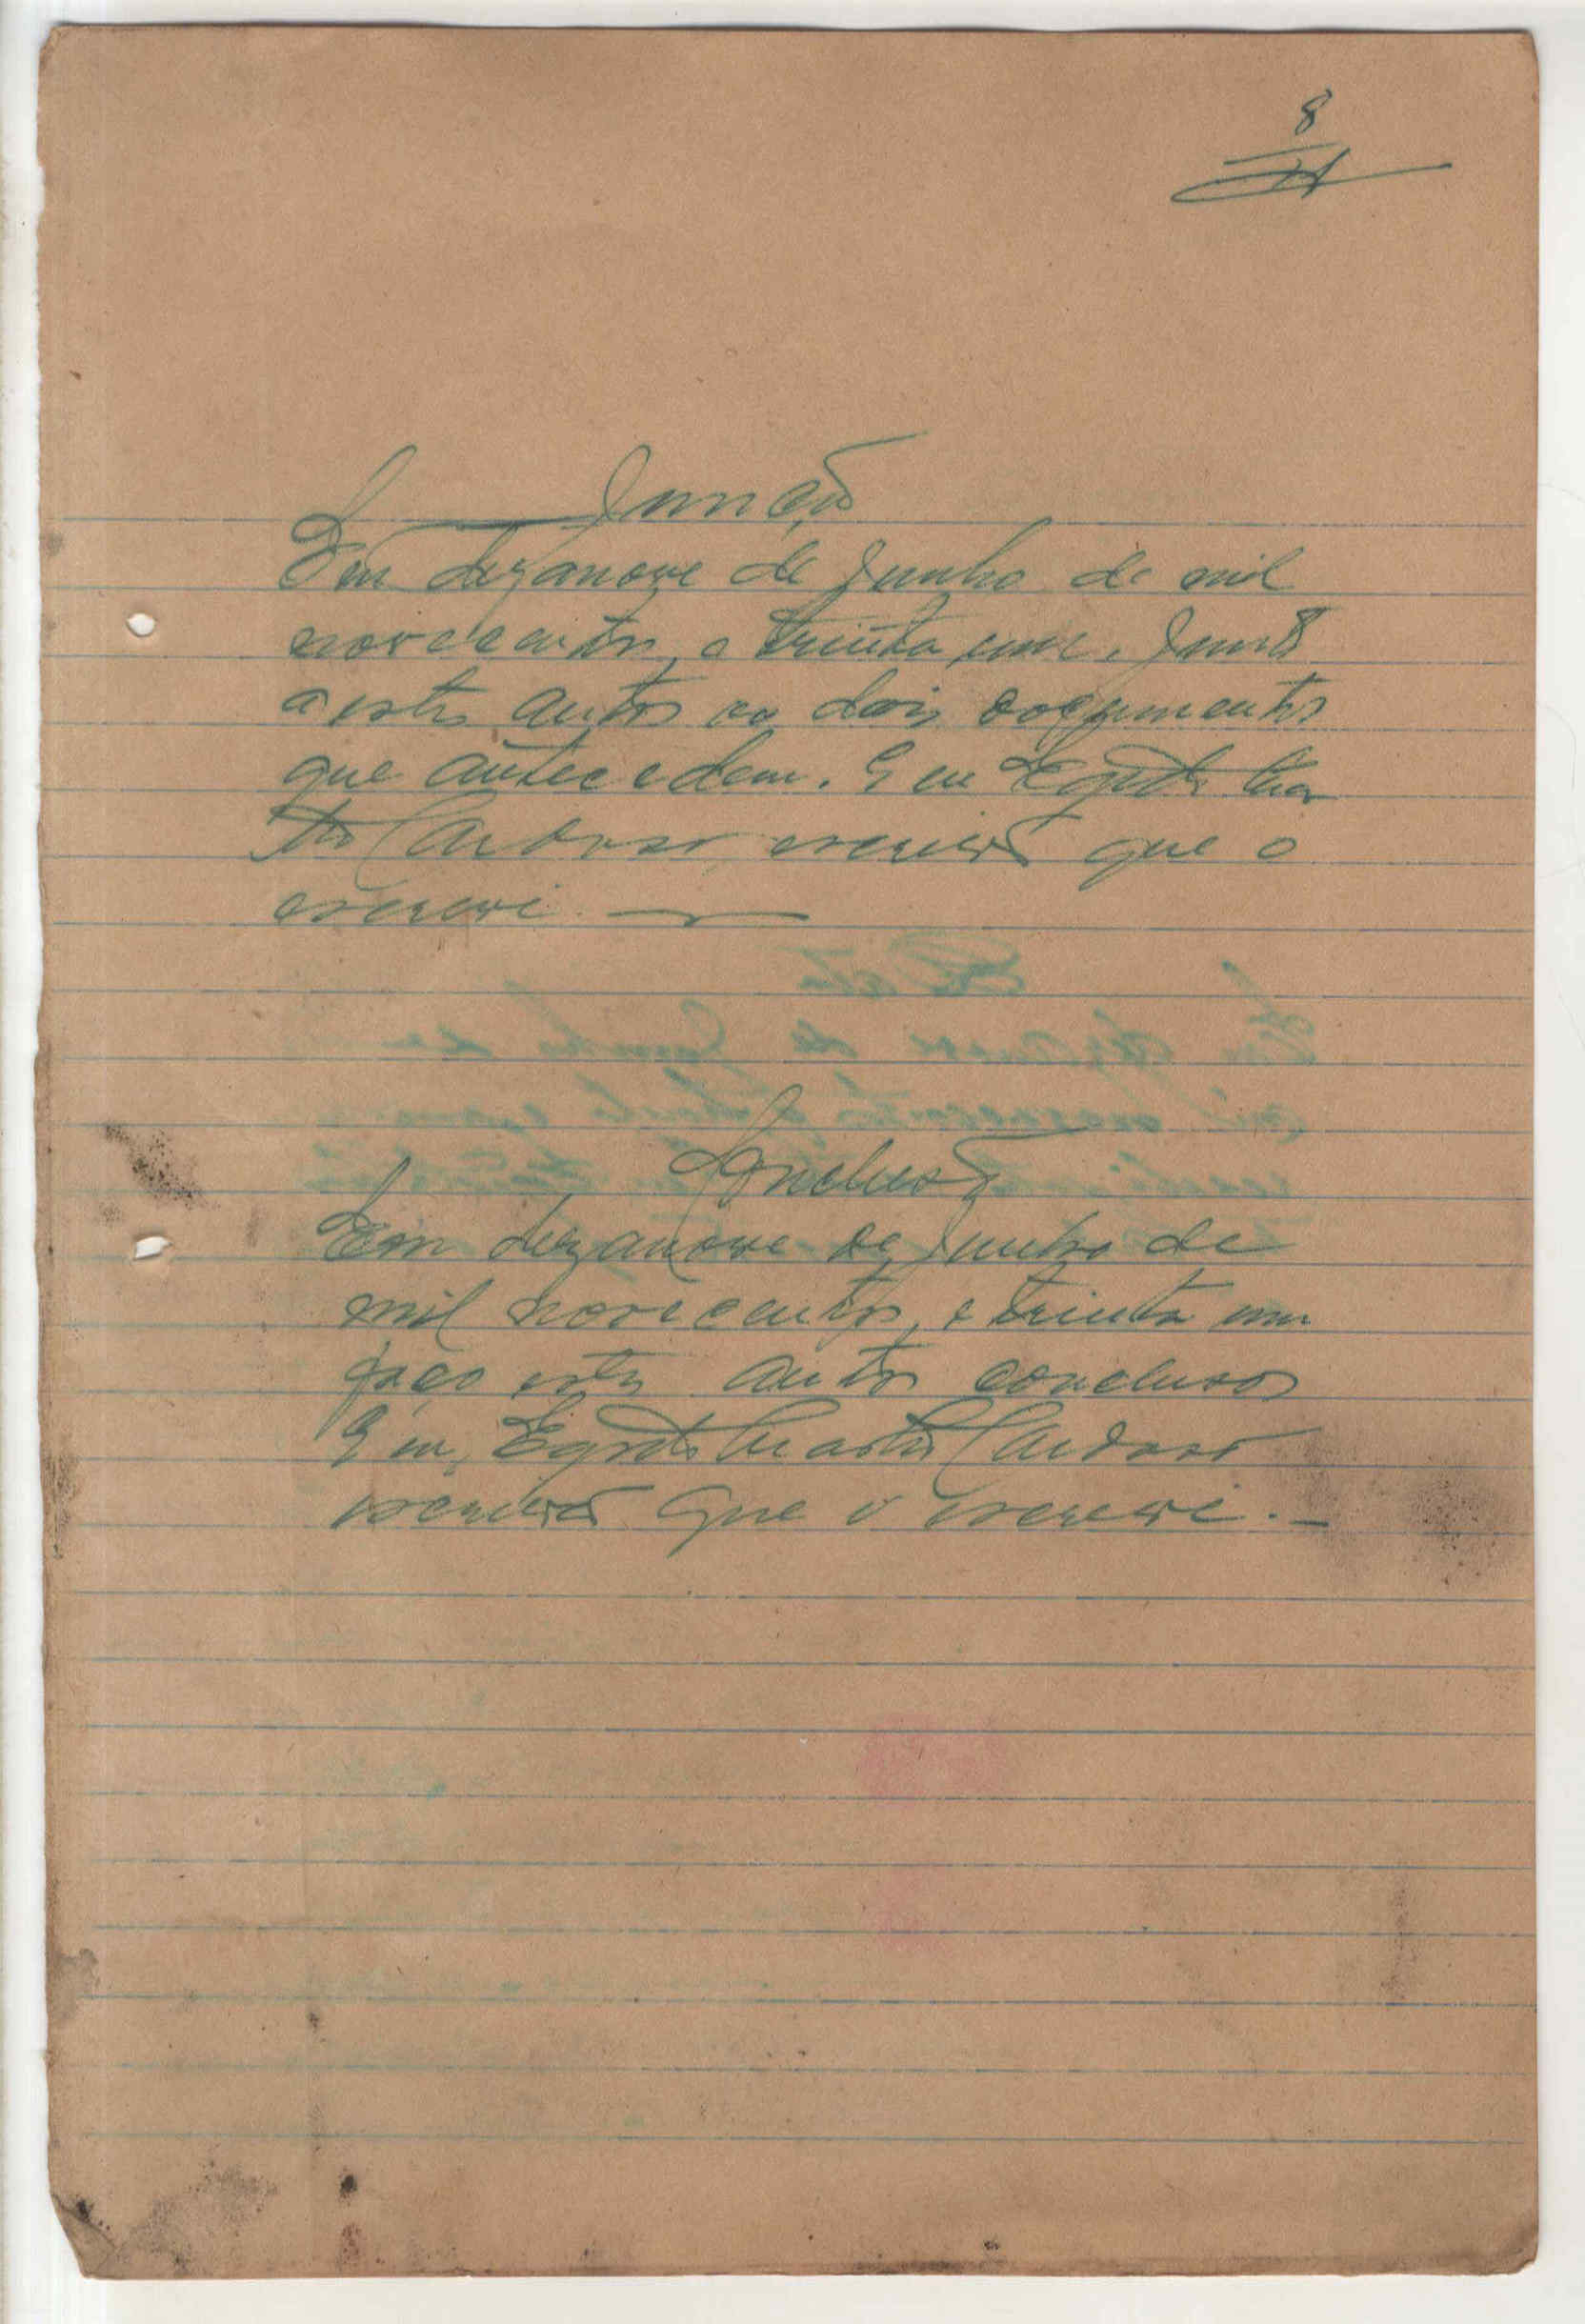 8
Junção
Em dezanove de Junho de mil
novecentos, e trinta um, Junto
a estes autos os dois documentos
que antecedem. Eu Egydio Cas
tro Cardoso, escrivão que o
escrevi.
Conclusão
Em dezanove de Junho de
mil novecentos, e trinta um
faço estes autos conclusos
Eu, Egydio Castro Cardoso
escrivão que o escrevi.